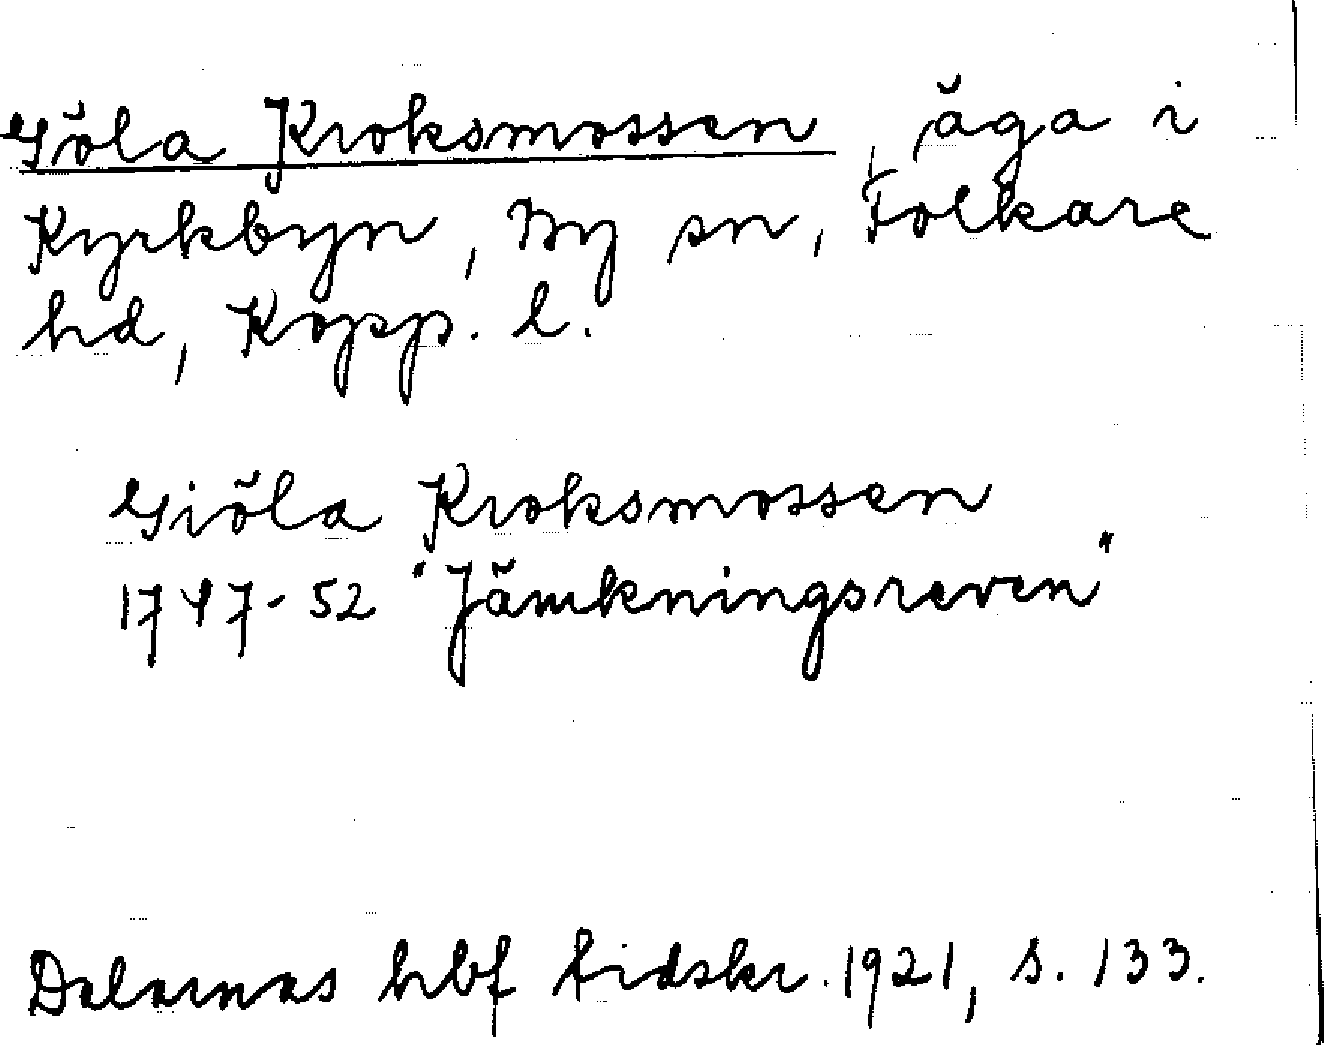 Göla Kroksmossen, äga i
Kyrkbyn, By sn, Folkare
hd, Kopp. l.
Giöla Kroksmossen
1747-52 "Jämkningsreven"
Dalarnas hbf tidskr. 1921, s. 133.